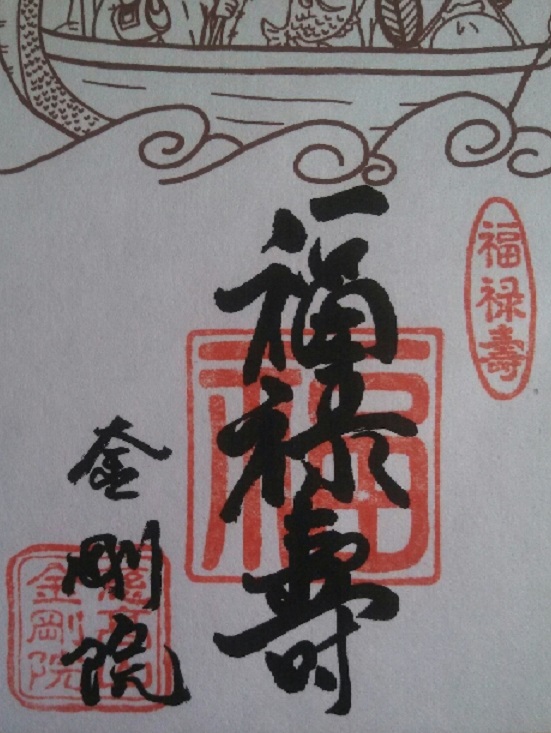 福禄壽
福
福禄壽
金剛院
金剛院